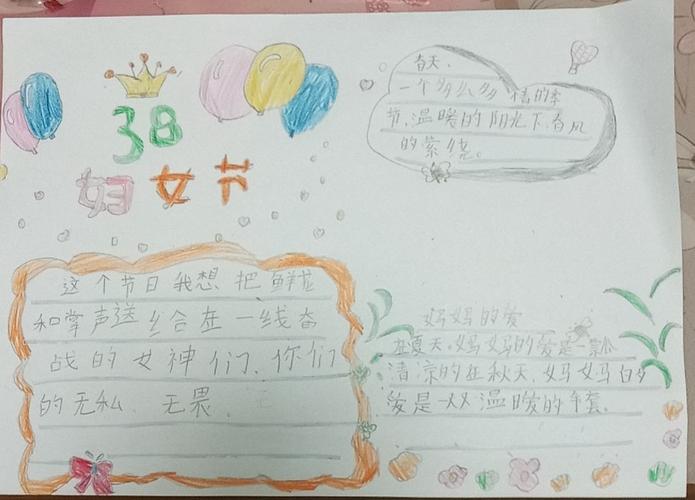 38
妇女节
春天、
一个多么多情的季
节,温暖的阳光下,春风
的萦绕。
这个节日我想把鲜花
和掌声送给在一线奋
战的女神们、你们
的无私、无畏、
妈妈的爱
在夏天,妈妈的爱是一
清凉的在秋天,妈妈的
爱是一双温暖的手套。